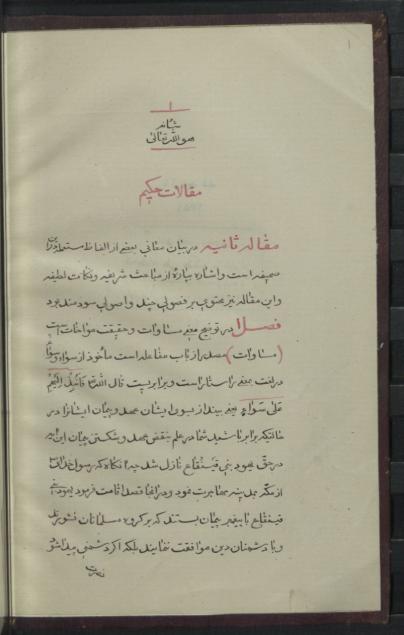 ۱
هو الله تعالی
مقالات حکیم
مقاله ثانیه در بیان معانی بعضی از الفاظ مستعمله در این
صحیفه است و اشاره بپاره از مباحث شریفه و نکات لطیفه
و این مقاله نیز محتوی بر فصولی چند و اصولی سودمند بود
فصل در توضیح معنی مساوات و حقیقت مواخات است
(مساوات) مصدر از باب مفاعله است مأخوذ از سواء و سواء
در لغت بمعنی راستا راست و برابریست قال الله تعالی فَانْبِذْ اِلَیْهِمْ
عَلی سَواءٍ یعنی بینداز بسوی ایشان عهد و پیمان ایشانرا در
حالتیکه برابر باشید شما در علم بنقض عهد و شکستن پیمان این آیه
در حق یهود بنی قینقاع نازل شد چه آنگاه که رسول خدا
از مکه بمدینه مهاجرت نمود و در آنجا قصد اقامت فرمود یهود بنی
قینقاع با پیغمبر پیمان بستند که بر گروه مسلمانان نشورند
و با دشمنان دین موافقت ننمایند بلکه اگر دشمنی پیدا شود